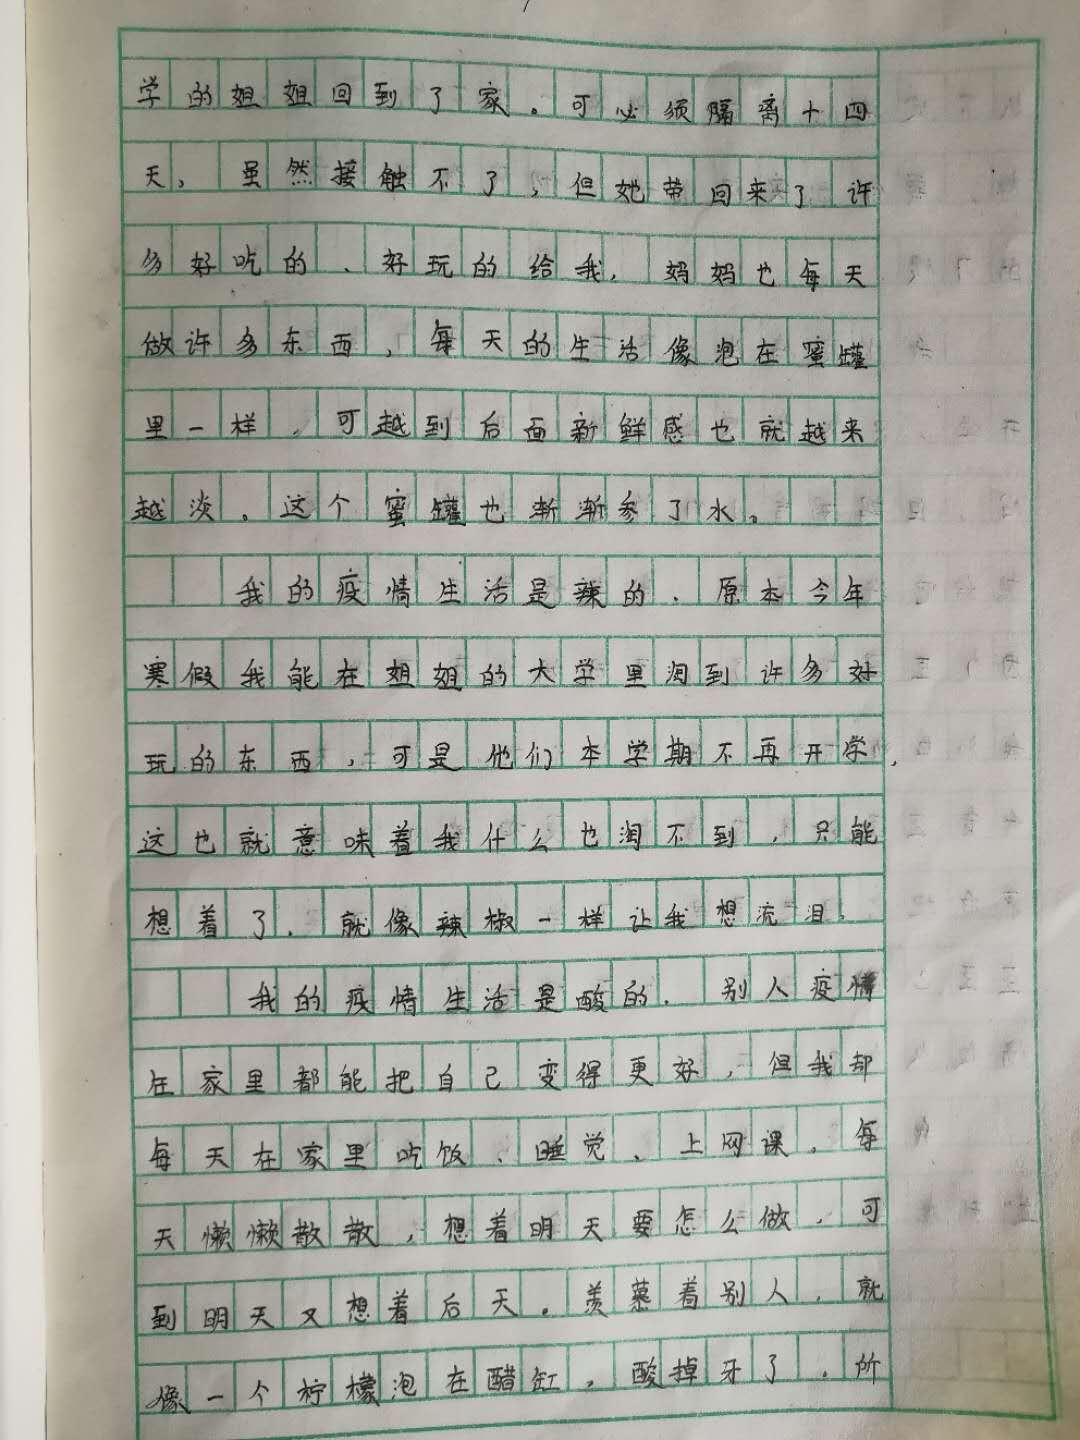 学的姐姐回到了家。可必须隔离十四
天，虽然接触不了，但她带回来了许
多好吃的、好玩的给我，妈妈也每天
做许多东西，每天的生活像泡在蜜罐
里一样，可越到后面新鲜感也就越来
越淡。这个蜜罐也渐渐参了水。
我的疫情生活是辣的．原本今年
寒假我能在姐姐的大学里淘到许多好
玩的东西，可是他们本学期不再开学，
这也就意味着我什么也淘不到，只能
想着了．就像辣椒一样让我想流泪．
我的疫情生活是酸的．别人疫情
在家里都能把自己变得更好，但我却
每天在家里吃饭、睡觉、上网课．每
天懒懒散散，想着明天要怎么做，可
到明天又想着后天。羡慕着别人，就
像一个柠檬泡在醋缸，酸掉牙了．所